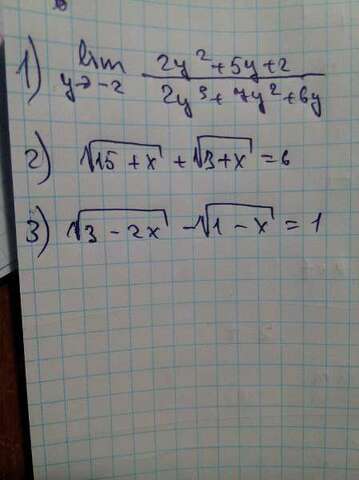 1) lim y→-2 (2y² + 5y + 2)/(2y³ + 7y² + 6y)
2) √(15 + x) + √(3 + x) = 6
3) √(3 - 2x) - √(1 - x) = 1